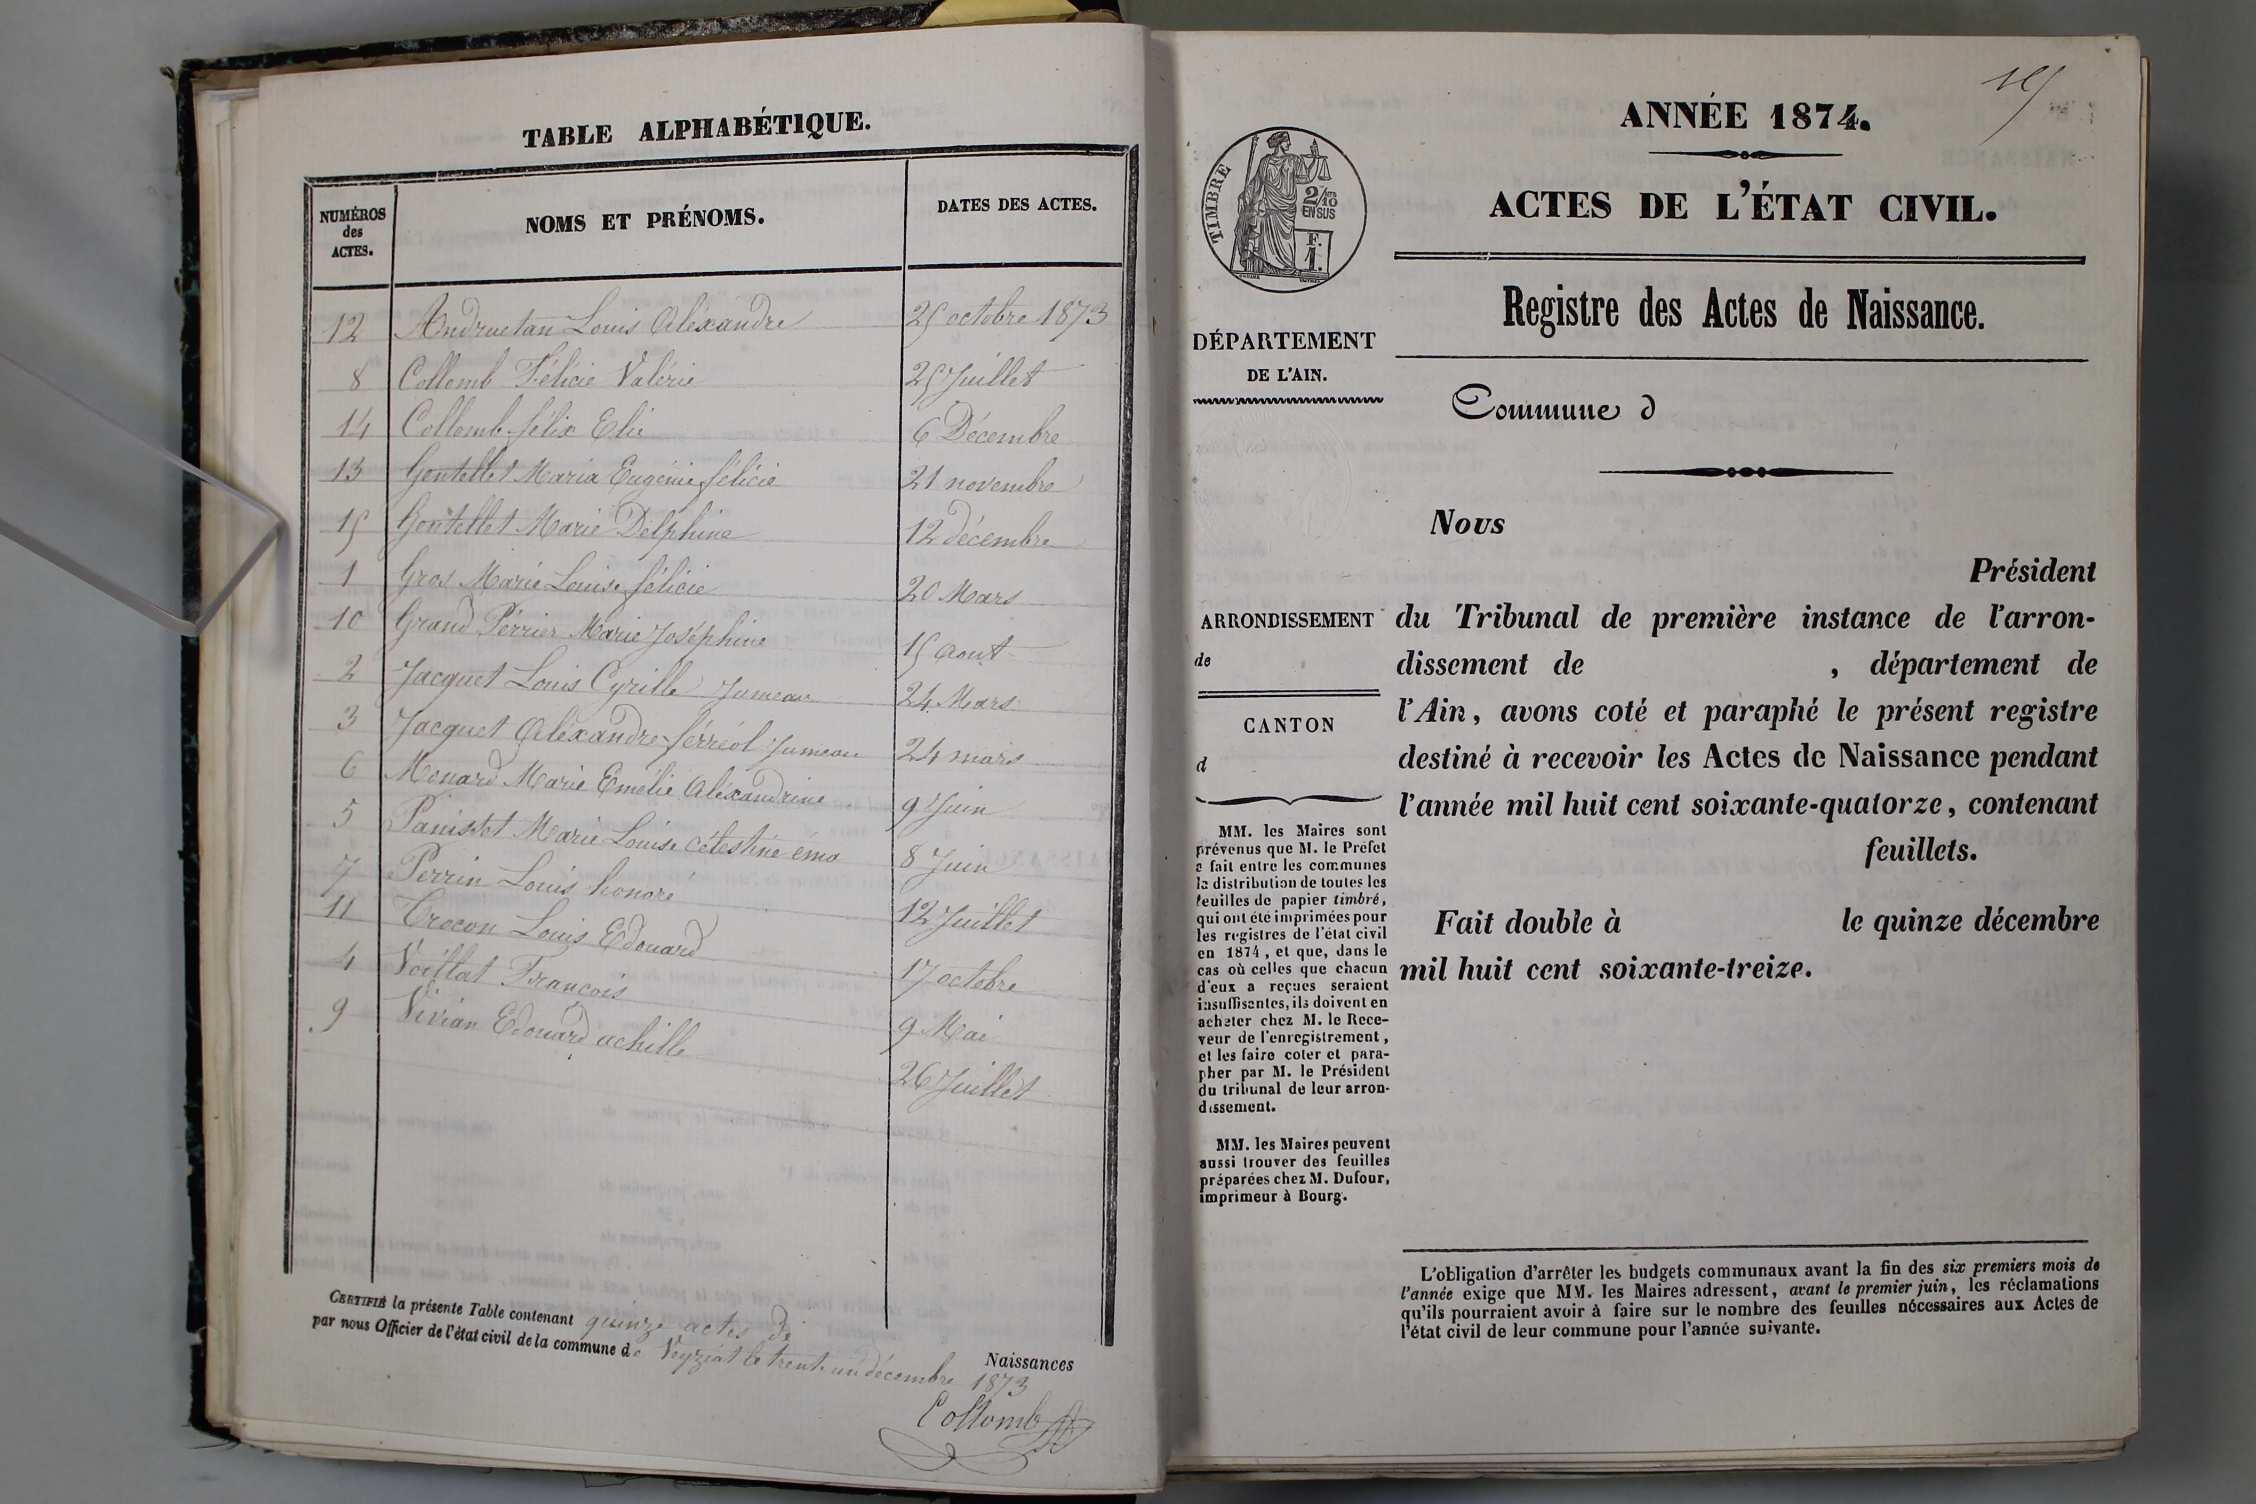 TABLE ALPHABÉTIQUE.
NUMÉROS
des
ACTES.
NOMS ET PRÉNOMS.
DATES DES ACTES.
12 Andruetan Louis Aléxandre 25 octobre 1873
8 Collomb Félicie Valérie 25 Juillet
14 Collomb félix Elie 6 Décembre
13 Gontellet Maria Eugénie félicie 21 novembre
15 Gontellet Marie Delphine 12 décembre
1 Gros Marie Louise félicie 20 Mars
10 Grand Perrier Marie Joséphine 15 aout
2 Jacquet Louis Cyrille Jumeau 24 Mars
3 Jacquet Aléxandre férréol Jumeau 24 mars
6 Monard Marie Emélie Aléxandrine 9 Juin
5 Panisset Marie Louise célestine éma 8 Juin
7 Perrin Louis honoré 12 Juillet
11 Crocon Louis Edouard 17 octobre
4 Voillat François 9 Mai
9 Vivian Edouard achille 26 Juillet
CERTIFIÉ la présente Table contenant quinze actes de Naissances
par nous Officier de l'état civil de la commune de Veyziat le trente un décembre 1873
Collomb
ANNÉE 1874.
ACTES DE L'ÉTAT CIVIL.
Registre des Actes de Naissance.
TIMBRE
2/10
EN SUS
F.
1.
DÉPARTEMENT
DE L'AIN.
Commune d
ARRONDISSEMENT
de
CANTON
d
MM. les Maires sont
prévenus que M. le Préfet
a fait entre les communes
la distribution de toutes les
feuilles de papier timbré,
qui ont été imprimées pour
les registres de l'état civil
en 1874, et que, dans le
cas où celles que chacun
d'eux a reçues seraient
insuffisantes, ils doivent en
acheter chez M. le Rece-
veur de l'enregistrement,
et les faire coter et para-
pher par M. le Président
du tribunal de leur arron-
dissement.
MM. les Maires peuvent
aussi trouver des feuilles
préparées chez M. Dufour,
imprimeur à Bourg.
Nous
Président
du Tribunal de première instance de l'arron-
dissement de , département de
l'Ain, avons coté et paraphé le présent registre
destiné à recevoir les Actes de Naissance pendant
l'année mil huit cent soixante-quatorze, contenant
feuillets.
Fait double à le quinze décembre
mil huit cent soixante-treize.
L'obligation d'arrêter les budgets communaux avant la fin des six premiers mois de
l'année exige que MM. les Maires adressent, avant le premier juin, les réclamations
qu'ils pourraient avoir à faire sur le nombre des feuilles nécessaires aux Actes de
l'état civil de leur commune pour l'année suivante.